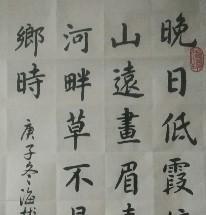 晚日低霞綺
山遠畫眉
河畔草不
鄉時
庚子冬海